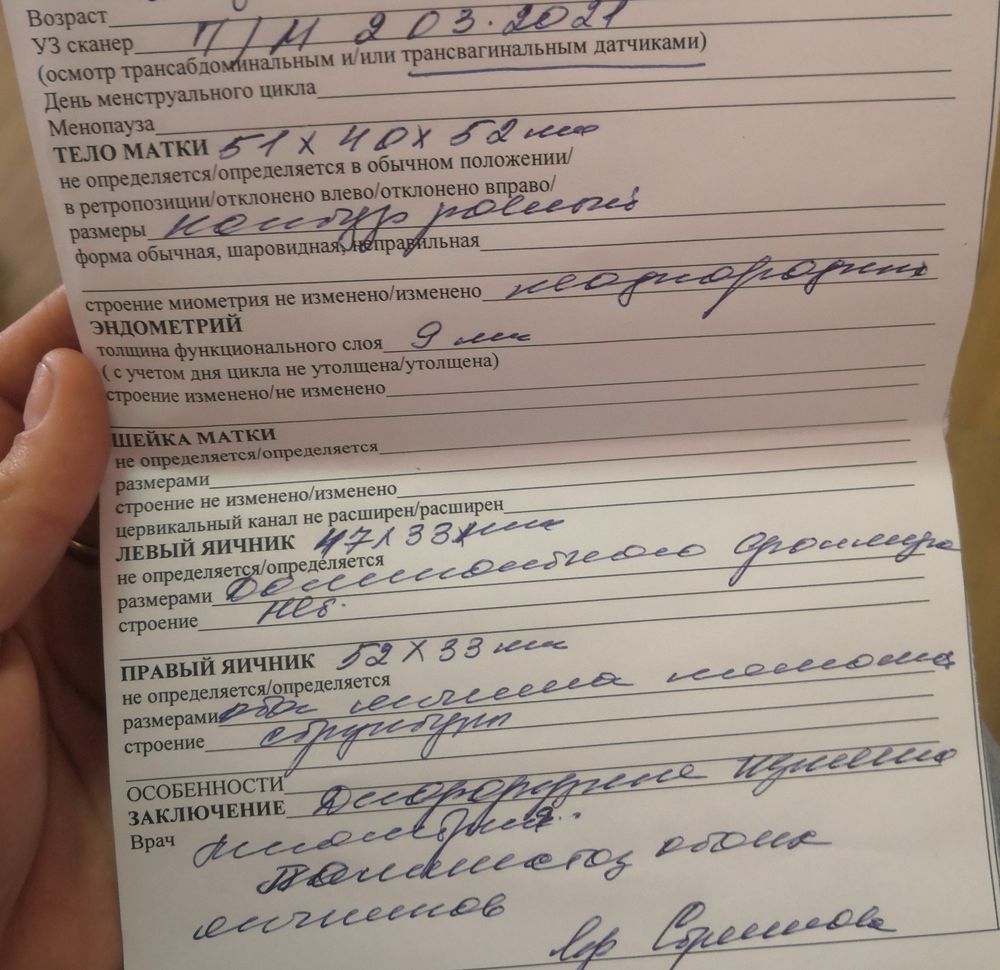 Возраст
УЗ сканер П/М 2 03.2021
(осмотр трансабдоминальным и/или трансвагинальным датчиками)
День менструального цикла
Менопауза
ТЕЛО МАТКИ 51 х 40 х 52 мм
не определяется/определяется в обычном положении/
в ретропозиции/отклонено влево/отклонено вправо/
размеры контур ровный
форма обычная, шаровидная, неправильная
строение миометрия не изменено/изменено неоднородный
ЭНДОМЕТРИЙ
толщина функционального слоя 9 мм
( с учетом дня цикла не утолщена/утолщена)
строение изменено/не изменено
ШЕЙКА МАТКИ
не определяется/определяется
размерами
строение не изменено/изменено
цервикальный канал не расширен/расширен
ЛЕВЫЙ ЯИЧНИК 47х33 мм
не определяется/определяется
размерами Доминантного фолликула
строение нет.
ПРАВЫЙ ЯИЧНИК 52 х 33 мм
не определяется/определяется
размерами оба яичника
строение структуры
ОСОБЕННОСТИ
ЗАКЛЮЧЕНИЕ Диффузные изменения
Врач миометрия.
обоих
яичников
Вр